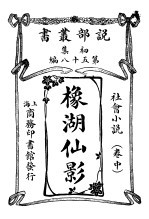 説部叢書
初集
第五十八編
社會小説
（卷中）
橡湖仙影
上海
商務印書館發行